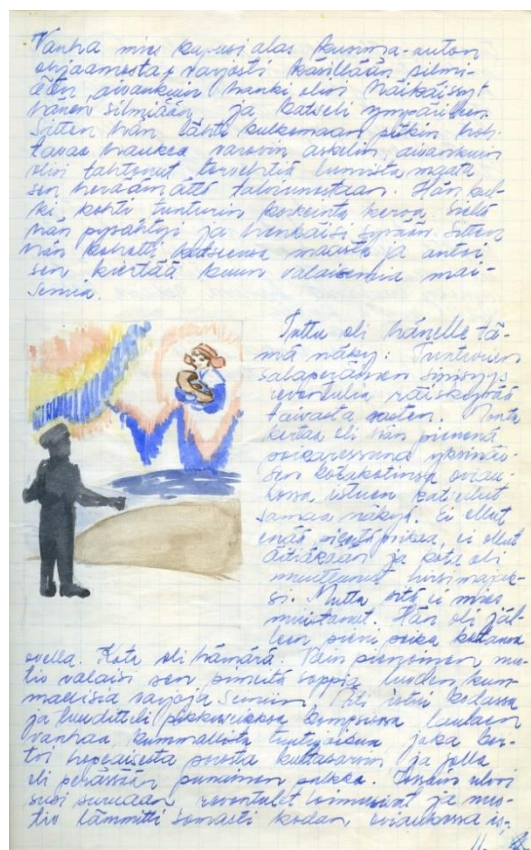 Vanha mies kapusi alas kuorma-auton
ohjaamosta, varjosti käsillään silmi-
ään, aivankuin hanki olisi häikäissyt
hänen silmiään ja katseli ympärilleen.
Sitten hän lähti kulkemaan pitkin hoh-
tavaa hankea varovin askelin, aivankuin
olisi tahtonut tervehtiä lumista maata
sen heräämättä talviunestaan. Hän kul-
ki kohti tunturin korkeinta keroa. Siellä
hän pysähtyi ja henkäisi syvään. Sitten
hän kohotti katseensa maasta ja antoi
sen kiertää kuun valaisemia mai-
semia.
Tuttu oli hänelle tä-
mä näky: Tunturien
salaperäinen sinisyys
revontulia räiskyvää
taivasta vasten. Monta
kertaa oli hän pienenä
poikaressuna yksinäi-
sen kotakotinsa oviau-
kossa istuen katsellut
samaa näkyä. Ei ollut
enää pientä poikaa, ei ollut
äitiäkään ja kota oli
muuttunut hirsimajak-
si. Mutta sitä ei mies
muistanut. Hän oli jäl-
leen pieni poika kotansa
ovella. Kota oli hämärä. Vain pienoinen nuo-
tio valaisi sen pimeitä soppia luoden kum-
mallisia varjoja seiniin. Äiti istui kodassa
ja tuuditteli pikkuveikkoa komsiossa laulaen
vanhaa, kummallista tuutulaulua joka ker-
toi hopeaisesta porosta kultasarvin ja jolla
oli perässään punainen pulkka. Jossain ulvoi
susi suruaan, revontulet loimusivat ja nuo-
tio lämmitti somasti kodan oviaukossa is-